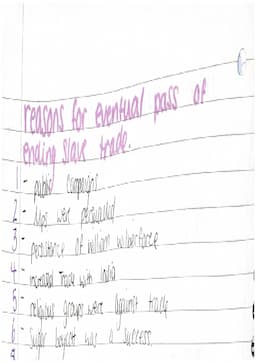 reasons for eventual pass of
ending slave trade.
1 - public campaigns
2 - Mps were persuaded
3 - persistence of william wilberforce
4 - increased Trade with India
5 - religious groups were against trade
6 - sugar boycott was a success.